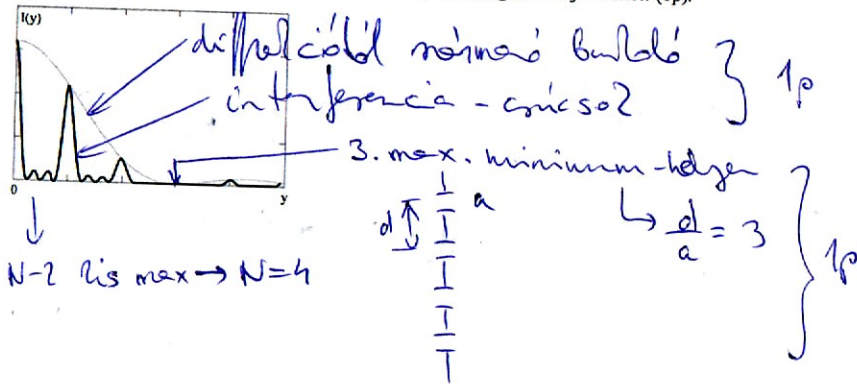 I(y)
diffrakcióból származó burkoló } 1p
interferencia - csúcsok
3. max. minimum-helyen
0
y
a
d
↳ d/a = 3 } 1p
N-2 kis max → N=4